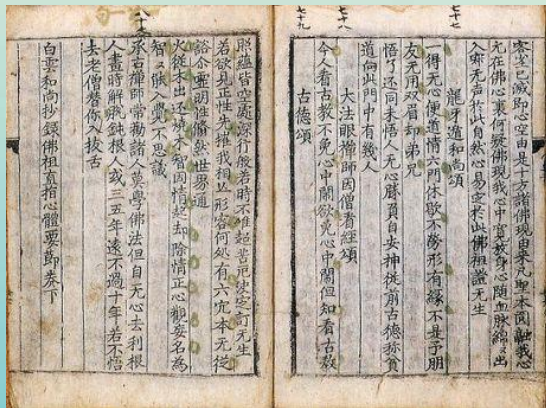 七十七
七十八
七十九
已滅即心空由是十方諸佛現由来凡聖本圓融我心
元在佛心裏何疑佛現我心中身心随血脉綿〻出
入无声於此自然心易定於此佛祖證无生
龍牙遁和尚頌
一得无心便道情六門休歇不勞形有緣不是予朋
友无用双眉却弟兄
悟了还同未悟人无心勝負自安神從前古德称貧
道向此門中有幾人
大法眼禅師因僧看經頌
今人看古教不免心中閙欲免心中閙但知看古教
古德頌
八十
照蘊皆空處深行般若時不唯超苦厄決定訂无生
若欲見正性先推我相亾形容何所有六本无從
靈明性世界通
火從木出还燒木智因情起却除情正心觀妄名為
智〻入覺不思議
承古禅師常勸諸人莫學佛法但自无心去利根
人晝時解脫鈍根人或三五年遠不過十年若不悟
去老僧替你入拔舌
白雲和尚抄錄佛祖直指心體要節卷下